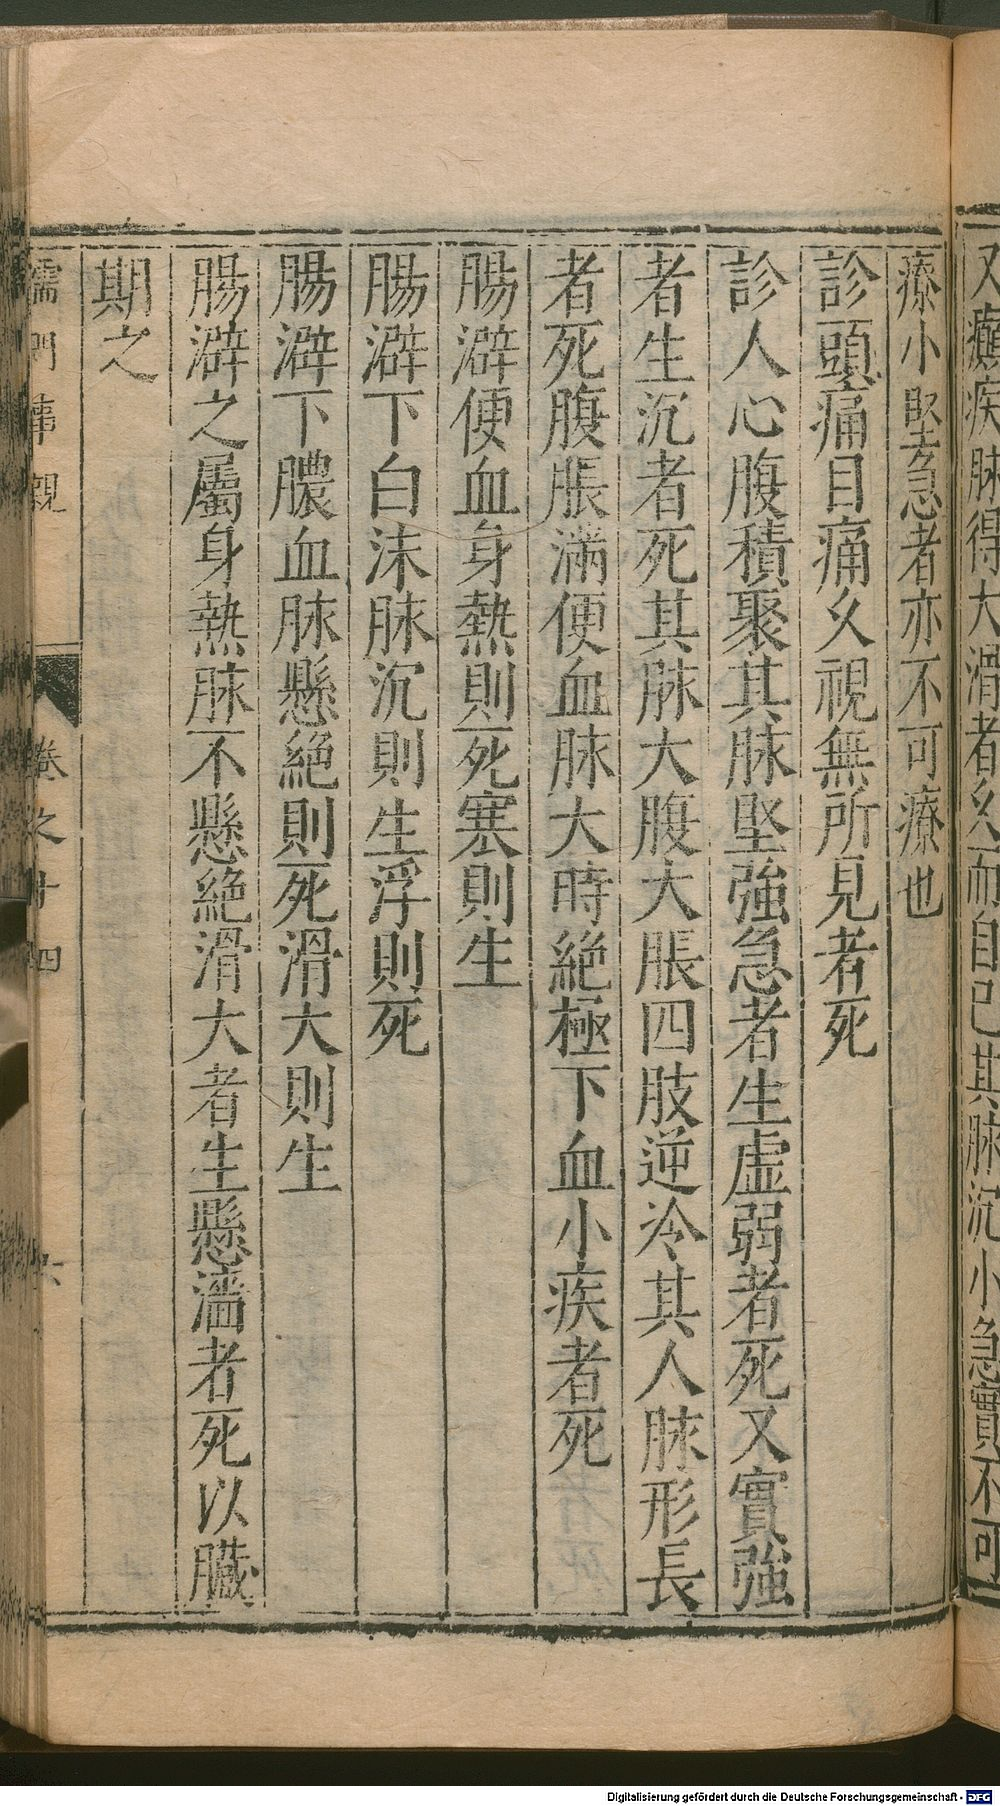 又癲疾脉得大滑者久而自已其脉沉小急實不可
療小堅急者亦不可療也
診頭痛目痛久視無所見者死
診人心腹積聚其脉堅強急者生虛弱者死又實強
者生沉者死其脉大腹大脹四肢逆冷其人脉形長
者死腹脹滿便血脉大時絕極下血小疾者死
腸澼便血身熱則死寒則生
腸澼下白沫脉沉則生浮則死
腸澼下膿血脉懸絕則死滑大則生
腸澼之屬身熱脉不懸絕滑大者生懸濇者死以臟
期之
儒門事親 卷之十四 六
Digitalisierung gefördert durch die Deutsche Forschungsgemeinschaft - DFG